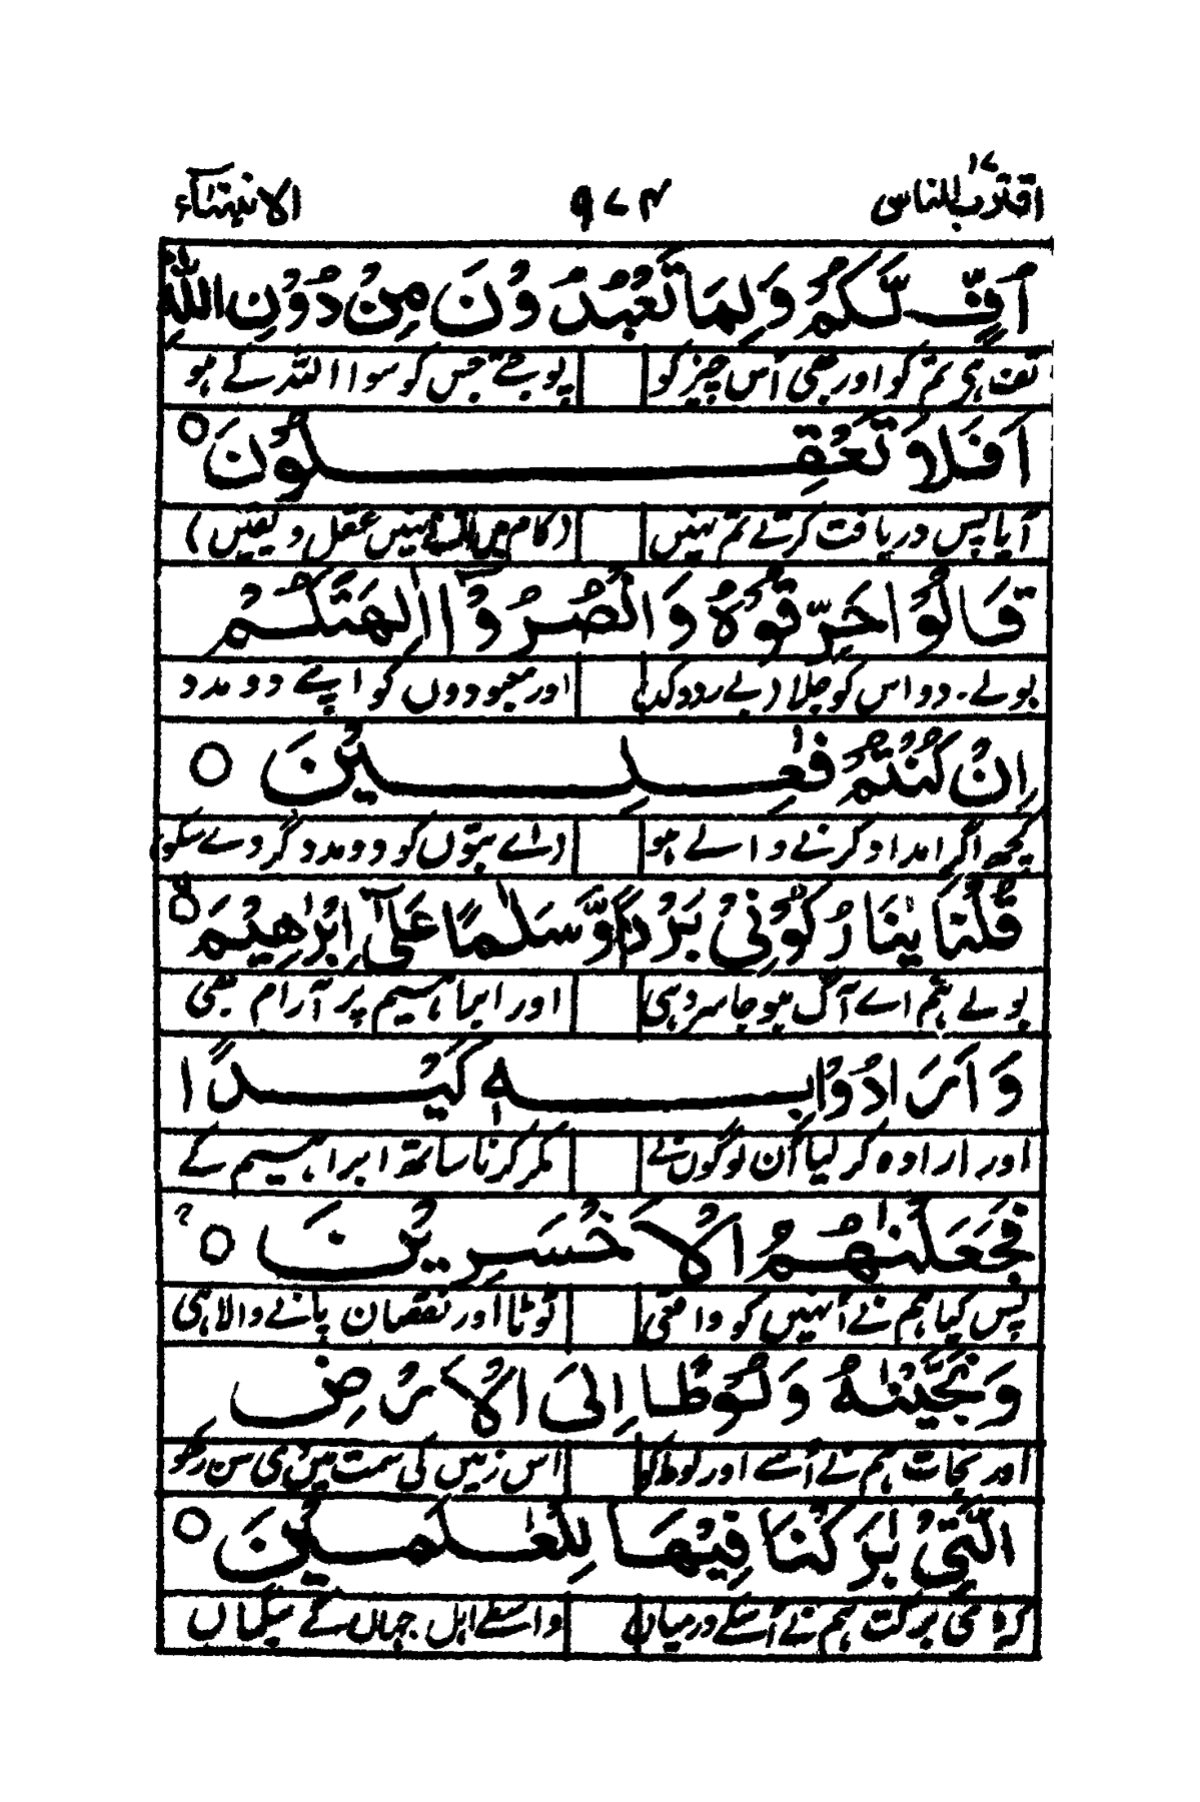 اقترب للناس ١٧
٩٧٤
الانبیآء
اُفٍّ لَّكُمْ وَلِمَا تَعْبُدُوْنَ مِنْ دُوْنِ اللّٰهِ
تف ہی تم کو اور بھی اُس چیز کو پوجتے جس کو سوا اللہ کے ہو
اَفَلَا تَعْقِلُوْنَ ○
آیا پس دریافت کرتے تم نہیں (کام میں لاتے نہیں عقل و یقیں)
قَالُوْا حَرِّقُوْهُ وَانْصُرُوْٓا اٰلِهَتَكُمْ
بولے۔ دو اس کو جلا (بے رد و کد) اور معبودوں کو اپنے دو مدد
اِنْ كُنْتُمْ فٰعِلِيْنَ ○
کچھ اگر امداد کرنے والے ہو (اے بتوں کو دو مدد گر دے سکو
قُلْنَا يٰنَارُ كُوْنِيْ بَرْدًا وَّسَلٰمًا عَلٰٓى اِبْرٰهِيْمَ ○
بولے ہم اے آگ ہو جا سرد ہی اور ابراہیم پر آرام بھی
وَاَرَادُوْا بِهٖ كَيْدًا
اور ارادہ کر لیا اُن لوگوں نے مکر کرنا ساتھ ابراہیم کے
فَجَعَلْنٰهُمُ الْاَخْسَرِيْنَ ○
پس کیا ہم نے اُنہیں کو واقعی ٹوٹا اور نقصان پانے والا ہی
وَنَجَّيْنٰهُ وَلُوْطًا اِلَى الْاَرْضِ
اور نجات ہم نے اُسے اور لوط کو اس زمیں کی سمت میں دی
الَّتِيْ بٰرَكْنَا فِيْهَا لِلْعٰلَمِيْنَ ○
کہ دی برکت ہم نے اُسکے درمیاں واسطے اہل جہاں کے بیگماں